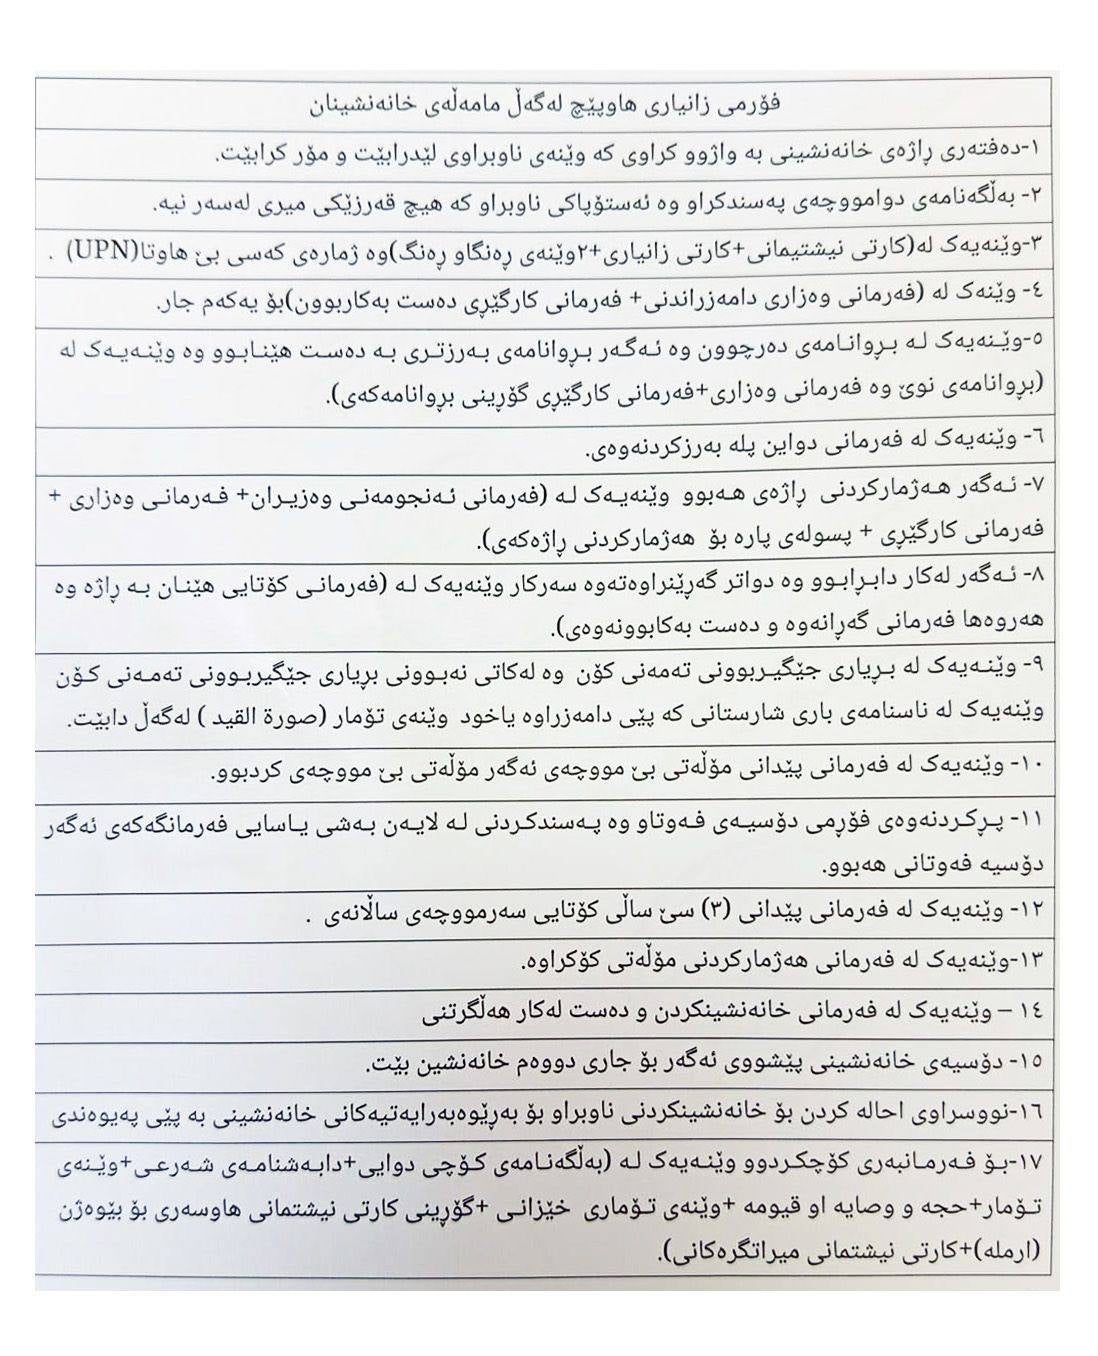 فۆرمی زانیاری هاوپێچ لەگەڵ مامەڵەی خانەنشینان
١-دەفتەری ڕاژەی خانەنشینی بە واژوو کراوی کە وێنەی ناوبراوی لێدرابێت و مۆر کرابێت.
٢- بەڵگەنامەی دوامووچەی پەسندکراو وە ئەستۆپاکی ناوبراو کە هیچ قەرزێکی میری لەسەر نیە.
٣-وێنەیەک لە(کارتی نیشتیمانی+کارتی زانیاری+٢وێنەی ڕەنگاو ڕەنگ)وە ژمارەی کەسی بێ هاوتا(UPN) .
٤- وێنەک لە (فەرمانی وەزاری دامەزراندنی+ فەرمانی کارگێڕی دەست بەکاربوون)بۆ یەکەم جار.
٥-وێنەیەک لە بڕوانامەی دەرچوون وە ئەگەر بڕوانامەی بەرزتری بە دەست هێنابوو وە وێنەیەک لە
(بڕوانامەی نوێ وە فەرمانی وەزاری+فەرمانی کارگێڕی گۆڕینی بڕوانامەکەی).
٦- وێنەیەک لە فەرمانی دواین پلە بەرزکردنەوەی.
٧- ئەگەر هەژمارکردنی ڕاژەی هەبوو وێنەیەک لە (فەرمانی ئەنجومەنی وەزیران+ فەرمانی وەزاری +
فەرمانی کارگێڕی + پسولەی پارە بۆ هەژمارکردنی ڕاژەکەی).
٨- ئەگەر لەکار دابڕابوو وە دواتر گەڕێنراوەتەوە سەرکار وێنەیەک لە (فەرمانی کۆتایی هێنان بە ڕاژە وە
هەروەها فەرمانی گەرانەوە و دەست بەکابوونەوەی).
٩- وێنەیەک لە بڕیاری جێگیربوونی تەمەنی کۆن وە لەکاتی نەبوونی بڕیاری جێگیربوونی تەمەنی کۆن
وێنەیەک لە ناسنامەی باری شارستانی کە پێی دامەزراوە یاخود وێنەی تۆمار (صورة القید ) لەگەڵ دابێت.
١٠- وێنەیەک لە فەرمانی پێدانی مۆڵەتی بێ مووچەی ئەگەر مۆڵەتی بێ مووچەی کردبوو.
١١- پڕکردنەوەی فۆڕمی دۆسیەی فەوتاو وە پەسندکردنی لە لایەن بەشی یاسایی فەرمانگەکەی ئەگەر
دۆسیە فەوتانی هەبوو.
١٢- وێنەیەک لە فەرمانی پێدانی (٣) سێ ساڵی کۆتایی سەرمووچەی ساڵانەی .
١٣-وێنەیەک لە فەرمانی هەژمارکردنی مۆڵەتی کۆکراوە.
١٤ – وێنەیەک لە فەرمانی خانەنشینکردن و دەست لەکار هەڵگرتنی
١٥- دۆسیەی خانەنشینی پێشووی ئەگەر بۆ جاری دووەم خانەنشین بێت.
١٦-نووسراوی احالە کردن بۆ خانەنشینکردنی ناوبراو بۆ بەڕێوەبەرایەتیەکانی خانەنشینی بە پێی پەیوەندی
١٧-بۆ فەرمانبەری کۆچکردوو وێنەیەک لە (بەڵگەنامەی کۆچی دوایی+دابەشنامەی شەرعی+وێنەی
تۆمار+حجە و وصایە او قیومە +وێنەی تۆماری خێزانی +گۆڕینی کارتی نیشتمانی هاوسەری بۆ بێوەژن
(ارملە)+کارتی نیشتمانی میراتگرەکانی).